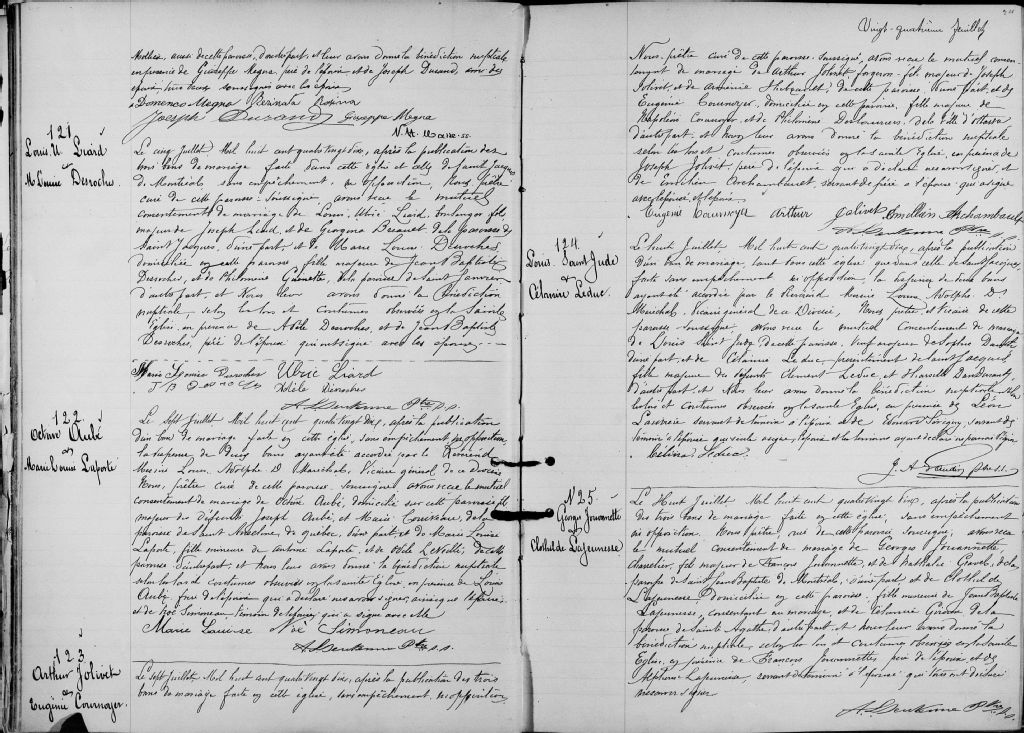 Mathieu, aussi de cette paroisse, d'autre part, et leur avons donné la bénédiction nuptiale
en présence de Giuseppe Megna, père de l'époux et de Joseph Durand,
époux, tous deux soussignés avec les époux
Domenico Megna
Joseph Durand Giuseppe Megna
121
Louis U. Liard
&
M. Louise Desroches.
Le cinq Juillet Mil huit cent quatrevingt dix, après la publication des
trois bans de mariage faite dans cette église et celle de Saint Jacques
de Montréal, sans empêchement, ni opposition, Nous, prêtre
curé de cette paroisse soussigné avons reçu le mutuel
consentement de mariage de Louis Ulric Liard, boulanger fils
majeur de Joseph Liard, et de Georgina de la paroisse de
Saint Jacques, d'une part, et de Marie Louise Desroches
domiciliée en cette paroisse fille majeure de Jean Baptiste
Desroches, et de Philomène de la paroisse de Saint Janvier
d'autre part, et Nous leur avons donné la bénédiction
nuptiale, selon les lois et coutumes observés en la Sainte
Église, en présence de Adèle Desroches, et de Jean Baptiste
Desroches, père de l'épouse qui ont signé avec les époux
Marie Louise Desroches Ulric Liard
J B Adèle Desroches
Ptre s.s.
122
Octave Aubé
&
Marie Louise Laporte
Le sept Juillet Mil huit cent quatrevingt dix, après la publication
d'un ban de mariage faite en cette église, sans empêchement ni opposition,
la dispense de deux bans ayant été accordée par le Révérend
Messire Louis Adolphe D Maréchal, Vicaire général de ce Diocèse
Nous, prêtre curé de cette paroisse soussigné avons reçu le mutuel
consentement de mariage de Octave Aubé domicilié sur cette paroisse fils
majeur des défunts Joseph Aubé, et Marie de la
paroisse de Saint Anselme, de québec, d'une part et de Marie Louise
Laporte, fille mineure de Antoine Laporte, et de de cette
paroisse d'autre part, et nous leur avons donné la bénédiction nuptiale
selon les lois et coutumes observés en la Sainte Église, en présence de Louis
Aubé, frère de l'époux qui a déclaré ne savoir signer, ainsi que l'époux,
et de Noé Simoneau témoin de l'épouse, qui a signé avec elle
Marie Louise Noé Simoneau
Ptre s.s.
123
Arthur Jolivet
&
Eugénie Cournoyer.
Le sept Juillet Mil huit cent quatrevingt dix, après la publication des trois
bans de mariage faite en cette église, sans empêchement, ni opposition,
Vingt-quatrième feuillet
Nous, prêtre curé de cette paroisse, soussigné, avons reçu le mutuel consen-
tement de mariage de Arthur Jolivet forgeron fils majeur de Joseph
Jolivet, et de Arménie de cette paroisse, d'une part, et de
Eugénie Cournoyer, domiciliée en cette paroisse, fille majeure de
Napoléon Cournoyer, et de Philomène de la Ville d'Ottawa
d'autre part, et nous leur avons donné la bénédiction nuptiale
selon les lois et coutumes observés en la Sainte Église, en présence de
Joseph Jolivet, père de l'époux qui a déclaré ne savoir signer, et
de Archambault, servant de père à l'épouse qui a signé
avec l'épouse, et l'époux
Eugénie Cournoyer Arthur Jolivet Archambault
Ptre s.s.
124
Louis Saint Jude
&
Célanire Leduc.
Le huit Juillet Mil huit cent quatrevingt dix, après la publication
d'un ban de mariage, tant dans cette église que dans celle de Saint Jacques,
faite sans empêchement ni opposition, la dispense de deux bans
ayant été accordée par le Révérend Messire Louis Adolphe D.
Maréchal, Vicaire général de ce Diocèse, Nous, prêtre et Vicaire de cette
paroisse soussigné, avons reçu le mutuel Consentement de mariage
de Louis Saint Jude, de cette paroisse, fils majeur de
d'une part, et de Célanire Leduc, de Saint Jacques,
fille majeure de défunts Clément Leduc et
d'autre part, et Nous leur avons donné la bénédiction nuptiale selon les
lois et coutumes observés en la Sainte Église, en présence de Léon
servant de témoin à l'époux et de servant de
témoin à l'épouse qui seule a signé, l'époux et les témoins ayant déclaré ne savoir signer
Leduc.
J. A. Ptre s.s.
N 25
Georges Jouvanette
&
Clothilde Lajeunesse
Le Huit Juillet Mil huit cent quatrevingt dix, après la publication
des trois bans de mariage faite en cette église, sans empêchement
ni opposition, Nous prêtre, curé de cette paroisse soussigné, avons reçu
le mutuel consentement de mariage de Georges Jouvannette,
charretier, fils majeur de François Jouvannette, et de Nathalie Gravel, de la
paroisse de Saint Jean Baptiste de Montréal, d'une part, et de Clothilde
Lajeunesse domiciliée en cette paroisse, fille mineure de Jean Baptiste
Lajeunesse, consentant au mariage, et de de la
paroisse de Sainte Agathe, d'autre part, et nous leur avons donné la
bénédiction nuptiale, selon les lois et coutumes observés en la Sainte
Église, en présence de François Jouvannette, père de l'époux, et de
Alphonse Lajeunesse, servant de témoin à l'épouse, qui tous ont déclaré
ne savoir signer
Ptre s.s.